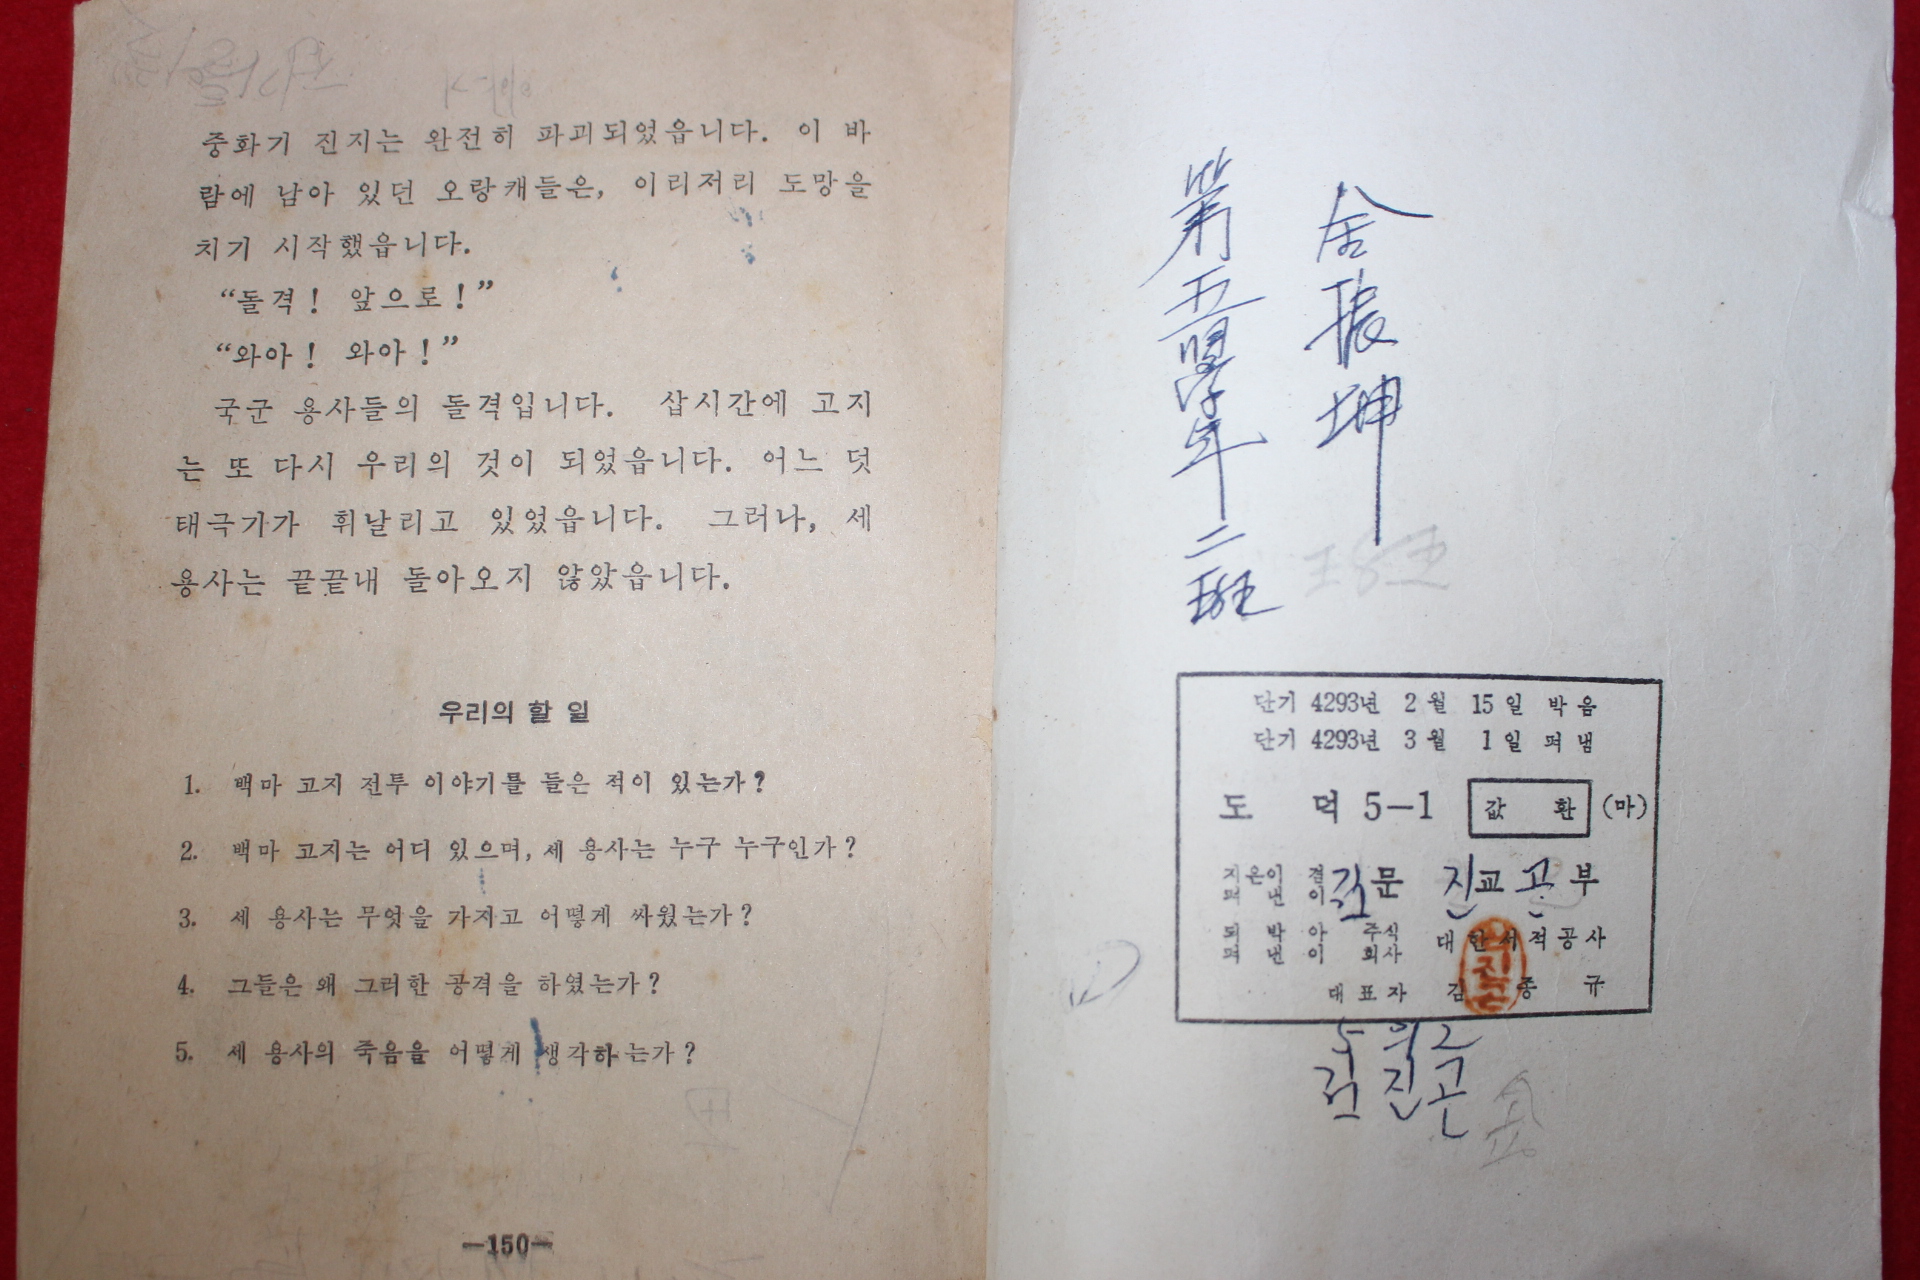 중화기 진지는 완전히 파괴되었읍니다. 이 바
람에 남아 있던 오랑캐들은, 이리저리 도망을
치기 시작했읍니다.
“돌격! 앞으로!”
“와아! 와아!”
국군 용사들의 돌격입니다. 삽시간에 고지
는 또 다시 우리의 것이 되었읍니다. 어느 덧
태극기가 휘날리고 있었읍니다. 그러나, 세
용사는 끝끝내 돌아오지 않았읍니다.
우리의 할 일
1. 백마 고지 전투 이야기를 들은 적이 있는가?
2. 백마 고지는 어디 있으며, 세 용사는 누구 누구인가?
3. 세 용사는 무엇을 가지고 어떻게 싸웠는가?
4. 그들은 왜 그러한 공격을 하였는가?
5. 세 용사의 죽음을 어떻게 생각하는가?
—150—
金振坤
第五學年二班
단기 4293년 2월 15일 박음
단기 4293년 3월 1일 펴냄
도 덕 5—1 값 환 (마)
지은이 겸
펴 낸 이
문 교 부
김 진 곤
되 박 아 주식
펴 낸 이 회사
대한서적공사
대표자 김 종 규
5의2
김진곤